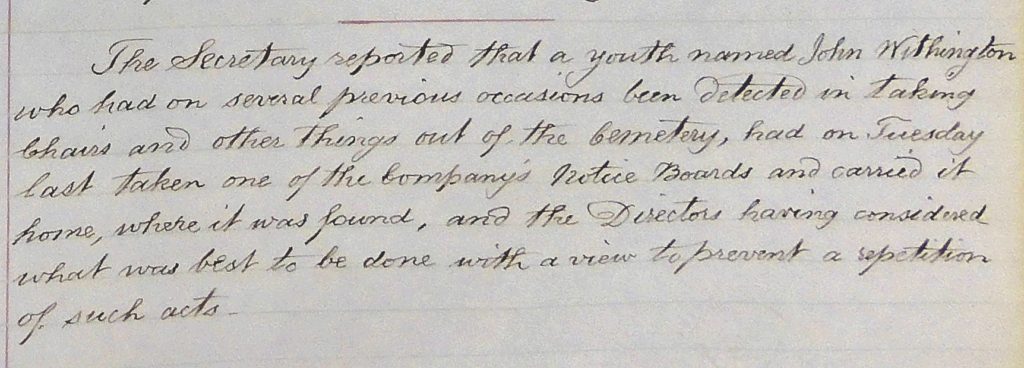 The Secretary reported that a youth named John Withington
who had on several previous occasions been detected in taking
Chairs and other things out of the Cemetery, had on Tuesday
last taken one of the Company's Notice Boards and carried it
home, where it was found, and the Directors having considered
what was best to be done with a view to prevent a repetition
of such acts-